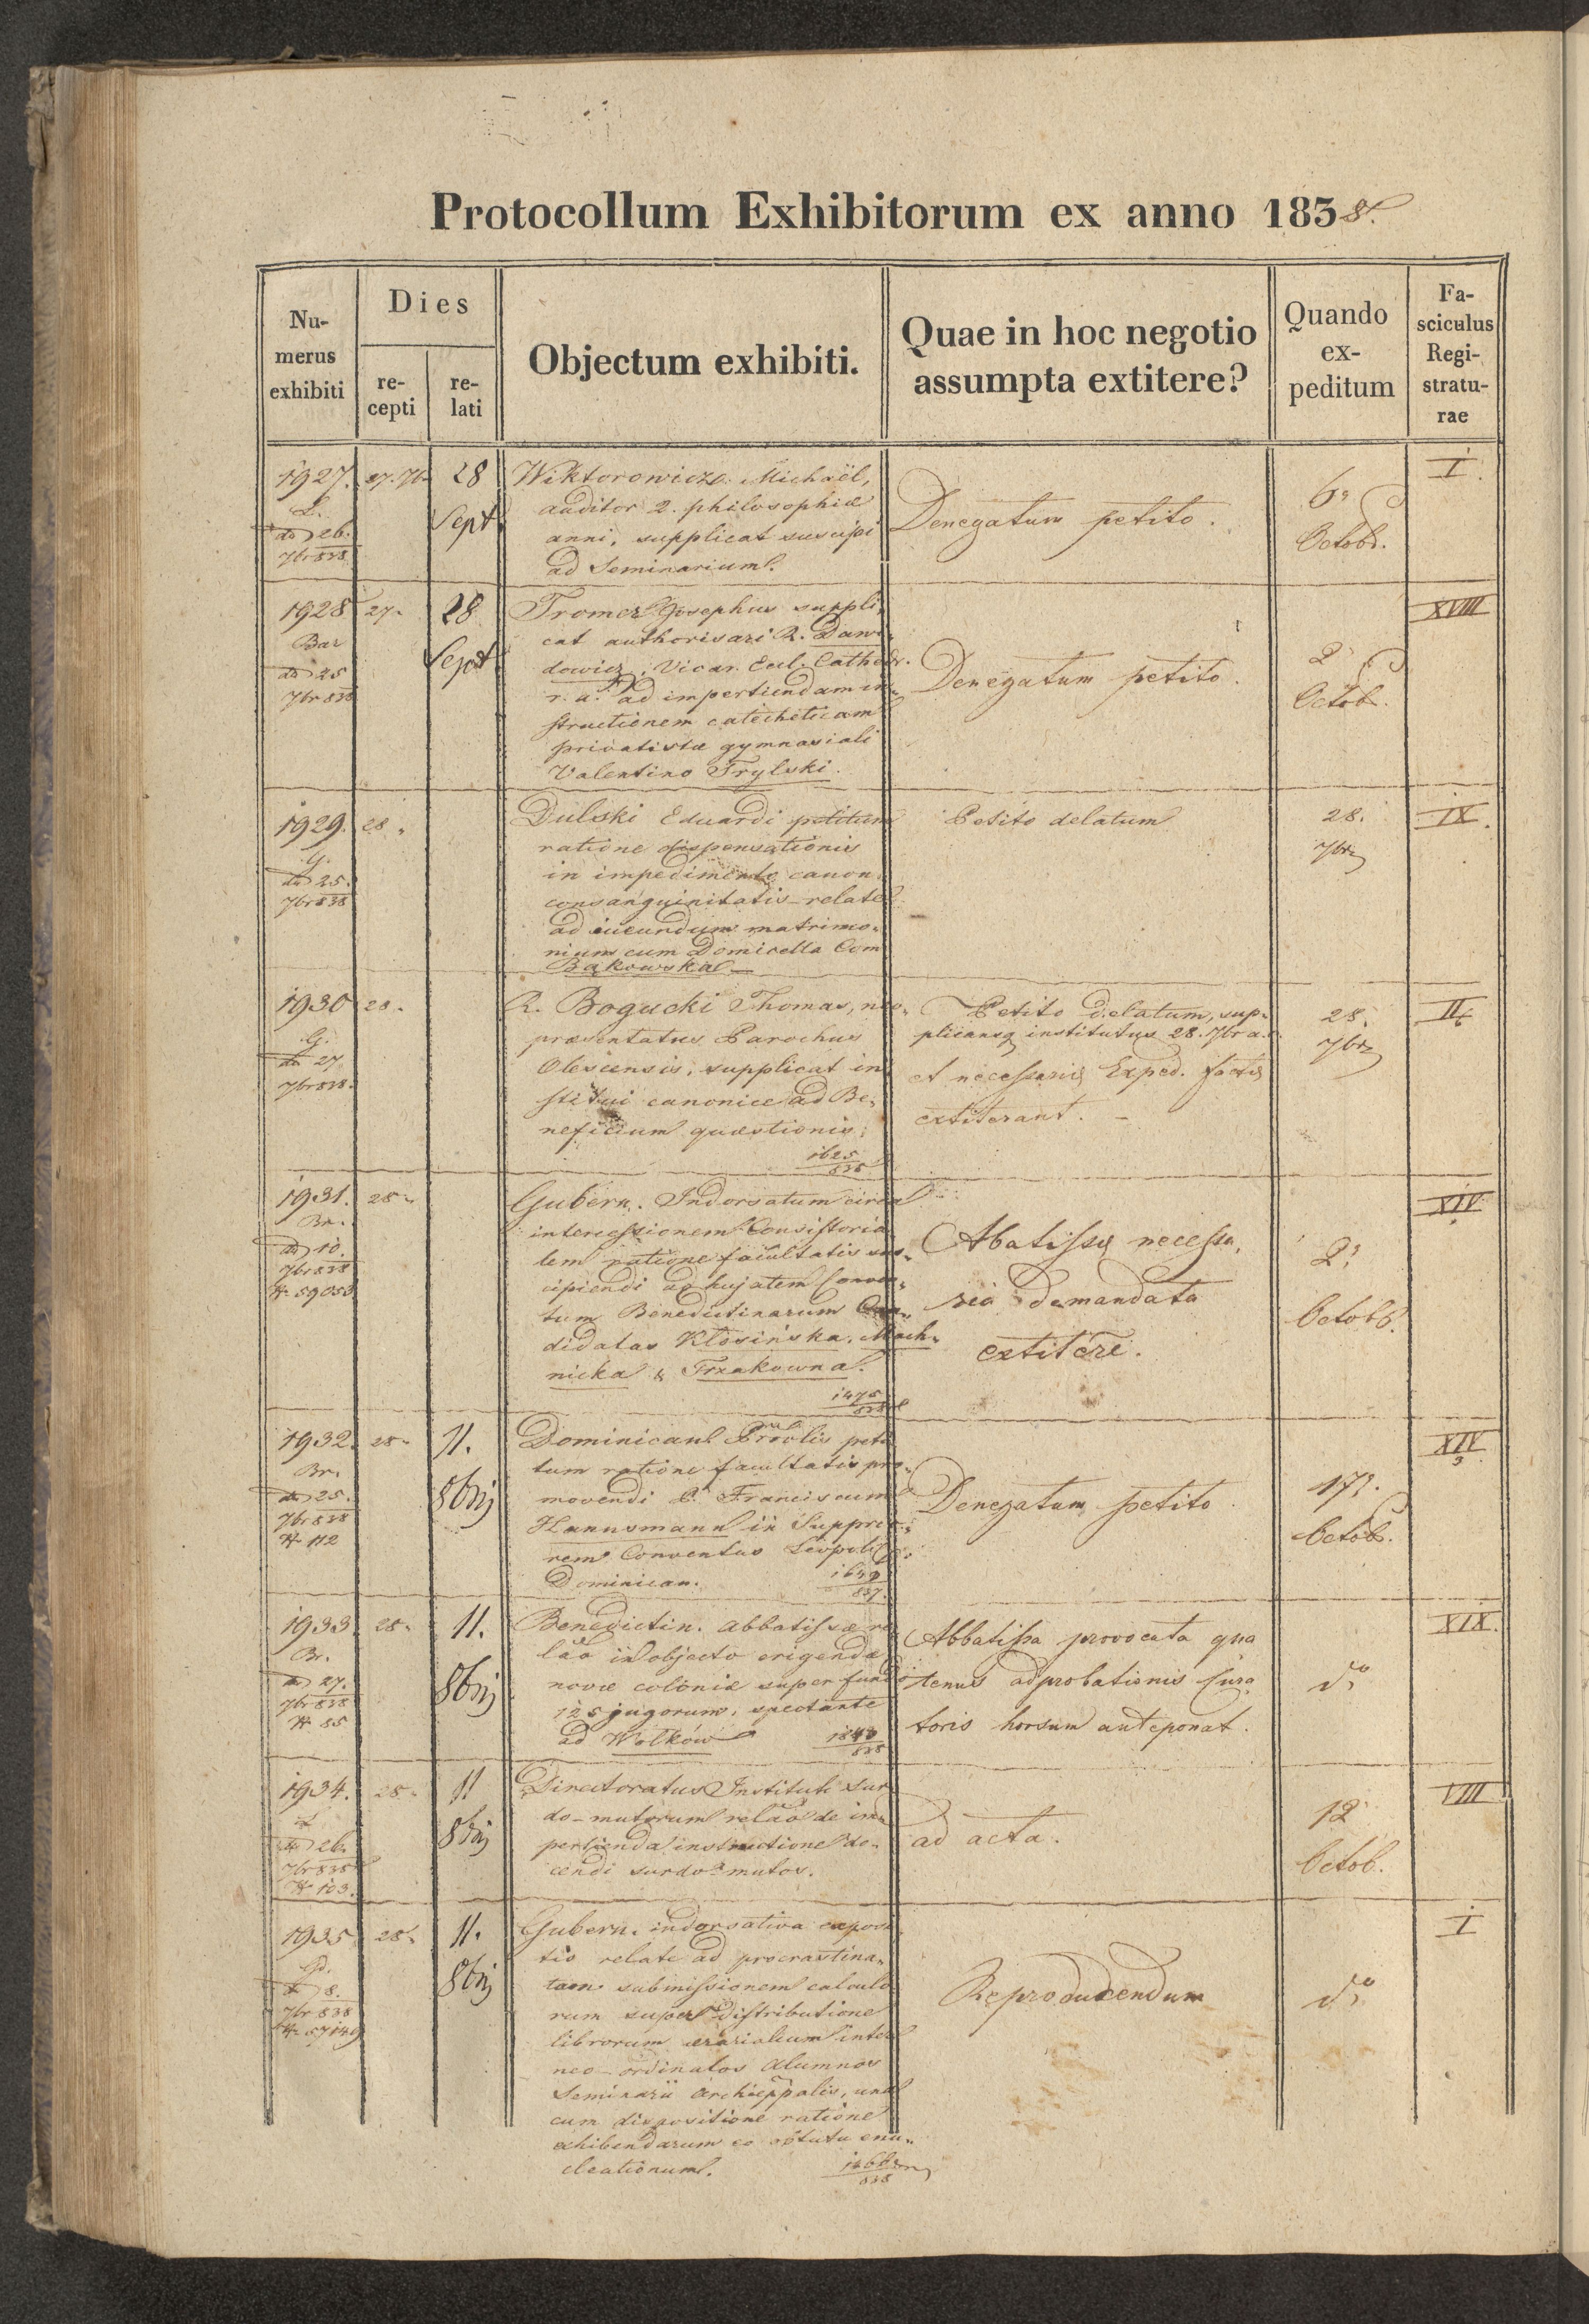 Protocollum Exhibitorum ex anno 1838.
Nu-
merus
exhibiti
Dies
re-
cepti
re-
lati
Objectum exhibiti.
Quae in hoc negotio
assumpta extitere?
Quando
ex-
peditum
Fa-
sciculus
Regi-
stratu-
rae
1927.
ddo 26.
7br 838
27. 7b
28
Sept
Wiktorowicz Michaël,
auditor 2. philosophiæ
anni, supplicat suscipi
ad Seminarium.
Denegatum petito.
6?
Octob.
I.
1928
Bar
ddo 25
7br 838
27
28
Sept
Tromer Josephus suppli-
cat authorisari R. Dawi-
dowicz, Vicar. Eccl. Cathedr.
r. a. ad impertiendam in-
structionem catecheticam
privatistæ gymnasiali
Valentino Trylski.
Denegatum petito.
2
Octob.
XVIII
1929.
G.
ddo 25.
7br 838
28
Dulski Eduardi petitum
ratione dispensationis
in impedimento canon.
consanguinitatis relate
ad ineundum matrimo-
nium cum Domicella Com
Bąkowska
Petito delatum
28.
7br
IX.
1930
G.
ddo 27
7br 838.
28
R. Bogucki Thomas, neo-
præsentatus Parochus
Olescensis, supplicat in-
stitui canonice ad Be-
neficium quæstionis.
1625
838
Petito delatum, sup-
plicansq institutus 28. 7br a.
et necessariæ Exped. factæ
extiterant.
28.
7br
II
1931.
Br.
ddo 10.
7br 838
N 59053
28
Gubern. Indorsatum circa
intercessionem Consistoria-
lem ratione facultatis sus-
cipiendi ad hujatem Conven-
tum Benedictinarum Can-
didatas Kłosińska, Mach-
nicka & Trzakowna.
1475
838
Abatissæ necessa-
ria demandata
extitere.
2
Octobb.
XIV
1932.
Br.
ddo 25.
7br 838
N 112
28
11.
8bris
Dominican Prövlis peti-
tum ratione facultatis pro-
movendi P. Franciscum
Hannusmann in Supprio-
rem Conventus Leopoli
Dominican.
1649
837.
Denegatum petito.
17.
Octob.
XIV
3
1933
Br.
ddo 27.
7br 838
N 85
28
11.
8bris
Benedictin. abbatissæ re-
lao in objecto erigendæ
novæ coloniæ super fundo
125 jugorum, spectante
ad Wolków
1840
838
Abbatissa provocata qua
tenus adprobationis Cura-
toris horsum anteponat.
do
XIX.
1934.
ddo 26.
7br 838
N 103.
28
11
8bris
Directoratus Instituti sur-
do-mutorum relao de im-
pertienda instructione do-
cendi surdo-mutos.
ad acta.
12
Octob.
VIII
1935
ddo 8.
7br 838
N 57149
28
11.
8bris
Gubern. indorsativa exposi-
tio relate ad procrastina-
tam submissionem calculo
rum super distributione
librorum ærarialium inter
neo-ordinatos alumnos
Seminarii Archieppalis, una
cum dispositione ratione
exhibendarum eo obtutu enu-
cleationum.
838
Reproducendum
do
I